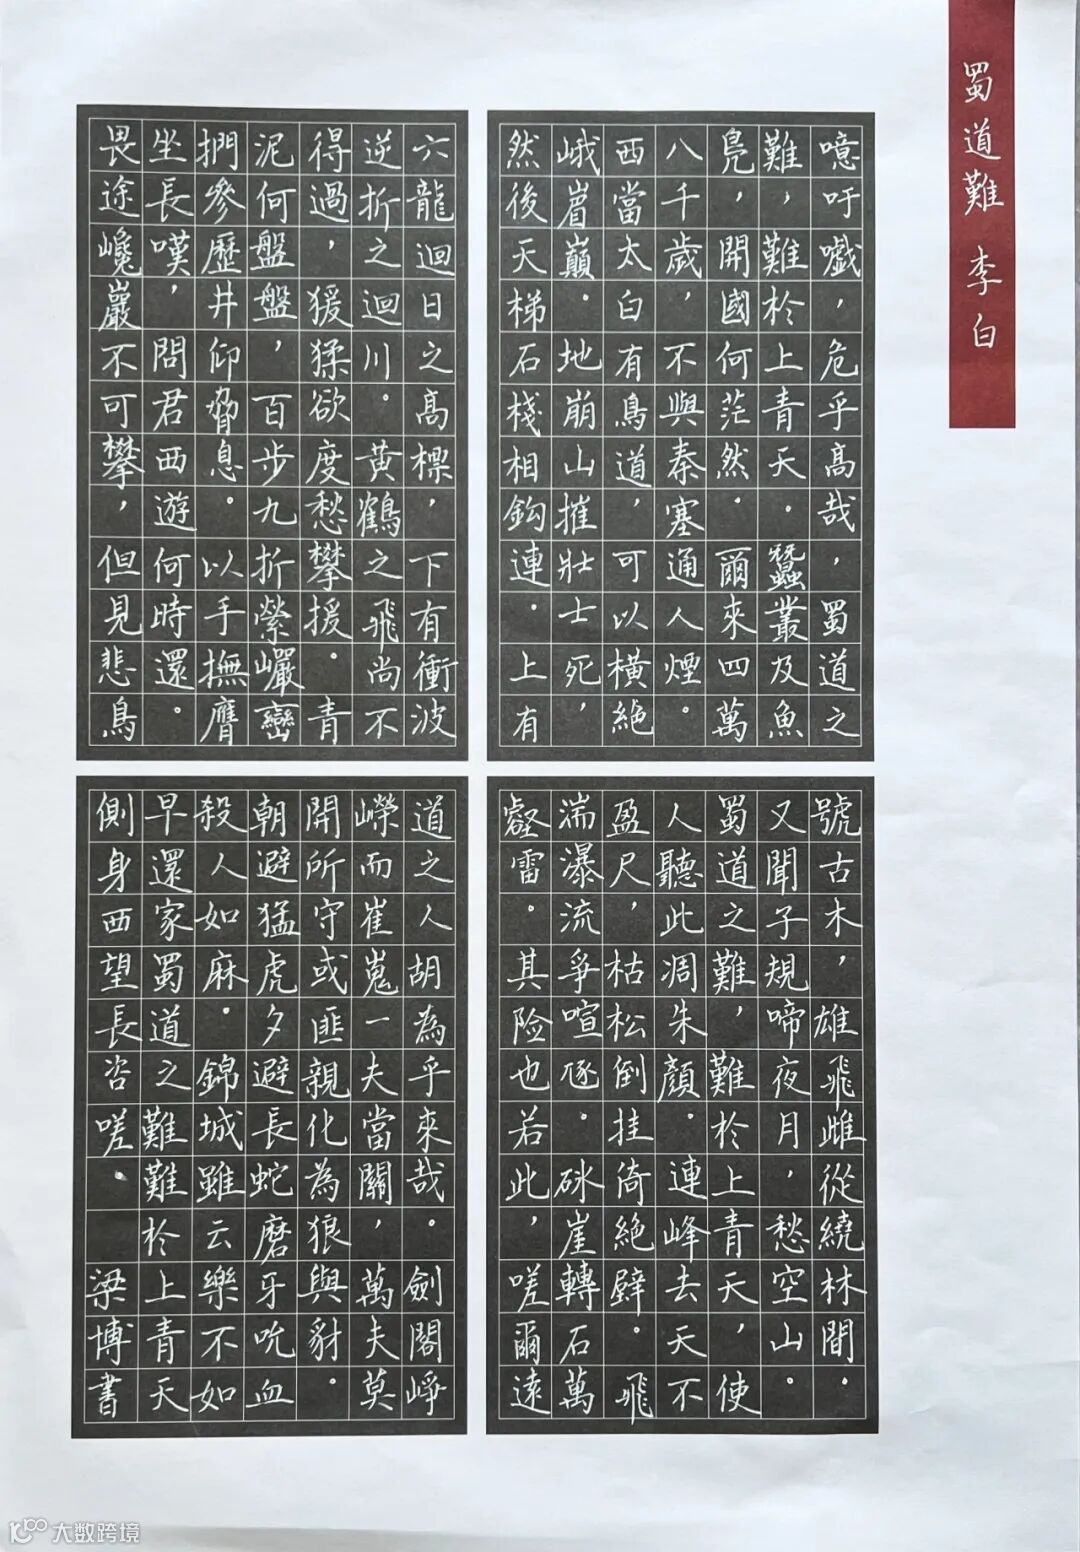 蜀道難 李白
噫吁戲，危乎高哉，蜀道之
難，難於上青天。蠶叢及魚
鳧，開國何茫然。爾來四萬
八千歲，不與秦塞通人煙。
西當太白有鳥道，可以橫絕
峨眉巔。地崩山摧壯士死，
然後天梯石棧相鈎連。上有
六龍迴日之高標，下有衝波
逆折之迴川。黃鶴之飛尚不
得過，猨猱欲度愁攀援。青
泥何盤盤，百步九折縈巖巒
捫參歷井仰脅息。以手撫膺
坐長嘆，問君西遊何時還。
畏途巉巖不可攀，但見悲鳥
號古木，雄飛雌從繞林間。
又聞子規啼夜月，愁空山。
蜀道之難，難於上青天，使
人聽此凋朱顏。連峰去天不
盈尺，枯松倒挂倚絕壁。飛
湍瀑流爭喧豗。砯崖轉石萬
壑雷。其险也若此，嗟爾遠
道之人胡為乎來哉。劍閣崢
嶸而崔嵬一夫當關，萬夫莫
開所守或匪親化為狼與豺。
朝避猛虎夕避長蛇磨牙吮血
殺人如麻。錦城雖云樂不如
早還家蜀道之難難於上青天
側身西望長咨嗟。梁博書
大数跨境